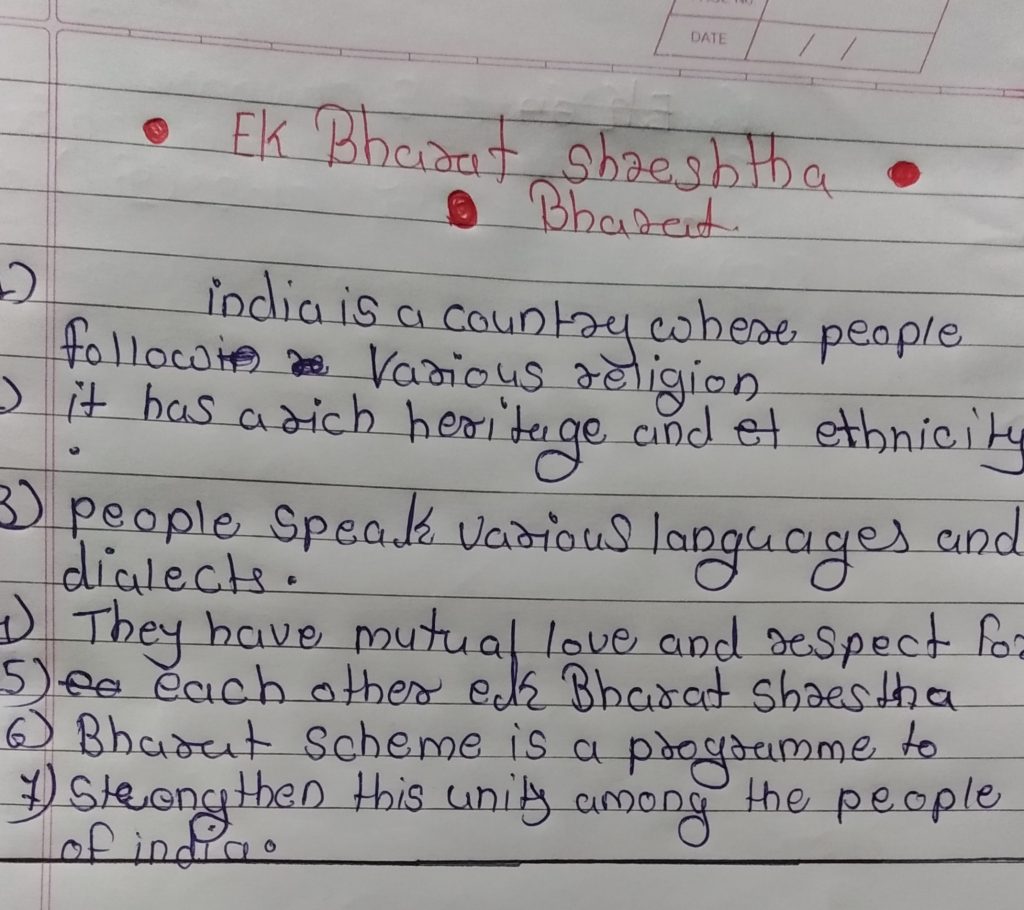 DATE / /
EK Bharat shreshtha
Bharat.
india is a country where people
follow various religion
it has a rich heritage and et ethnicity
.
3) people speak various languages and
dialects.
They have mutual love and respect for
5) each other ek Bharat shrestha
6) Bharat scheme is a programme to
7) Strengthen this unity among the people
of india.